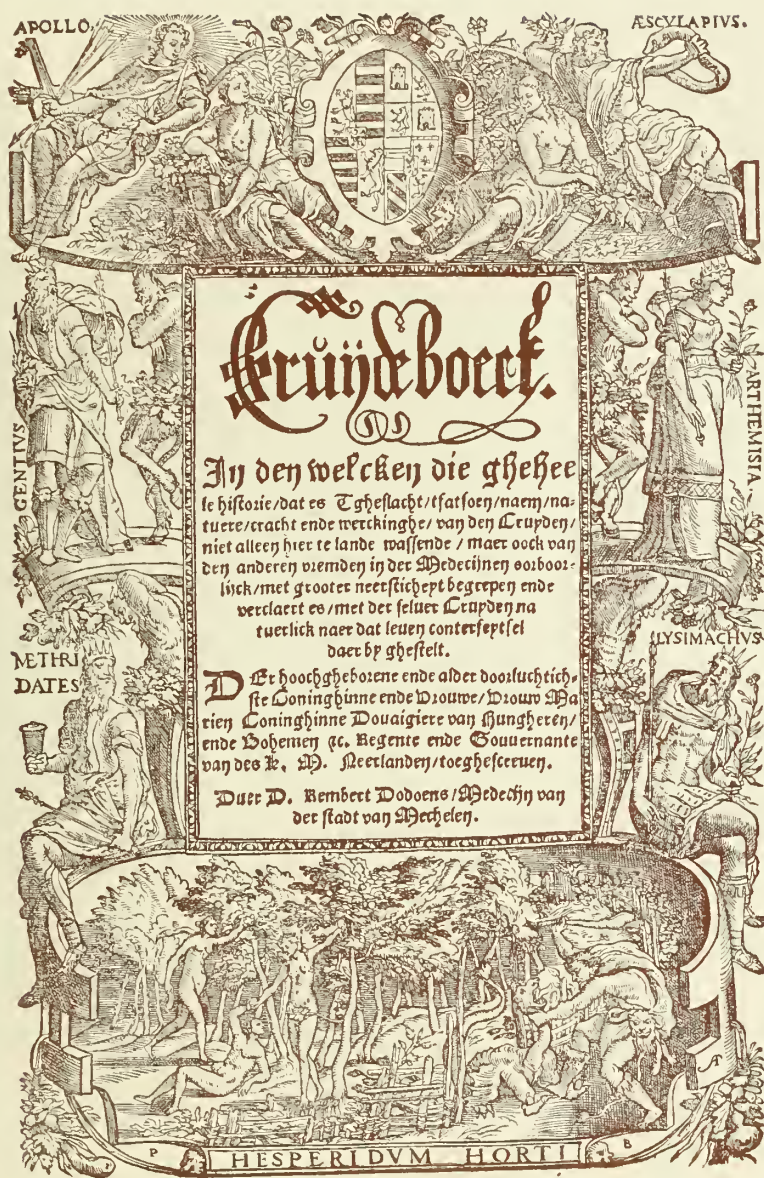 APOLLO.
ÆSCVLAPIVS.
GENTIVS
ARTHEMISIA.
Cruijdeboeck.
In den welcken die gheheele
le historie/dat es Tgheslacht/tfatsoen/naem/na-
tuere/cracht ende werckinghe/van den Cruyden/
niet alleen hier te lande wassende/maer oock van
den anderen vremden in der Medecijnen oorboor-
lijck/met grooter neersticheyt begrepen ende
verclaert es/met der seluer Cruyden na
tuerlick naer dat leuen conterfeytsel
daer by ghestelt.
METHRI
DATES
LYSIMACHVS
DEr hoochgheborene ende alder doorluchtich-
ste Coninghinne ende Vrouwe/Vrouw Ma
rien Coninghinne Douaigiere van Hungheren/
ende Bohemen ꝛc. Regente ende Gouuernante
van des K. M. Neerlanden/toeghescreuen.
Duer D. Rembert Dodoens/Medecijn van
der stadt van Mechelen.
A
P
B
HESPERIDVM HORTI